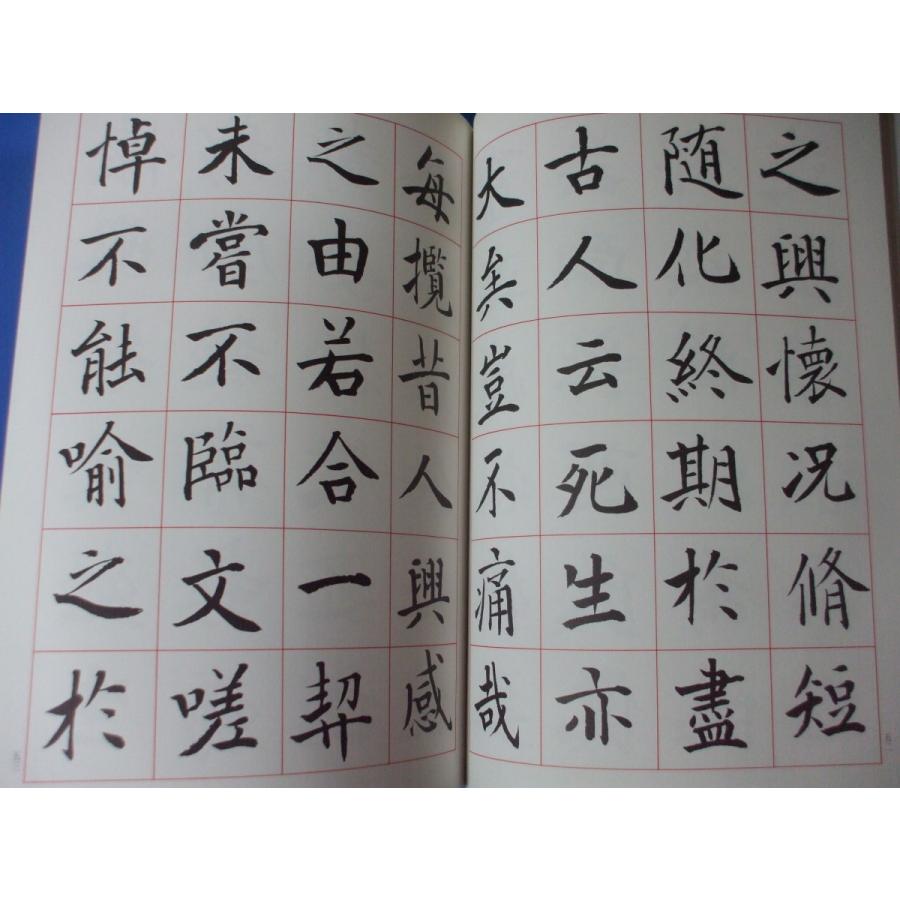 之興懷況脩短
随化終期於盡
古人云死生亦
大矣豈不痛哉
每攬昔人興感
之由若合一契
未嘗不臨文嗟
悼不能喻之於